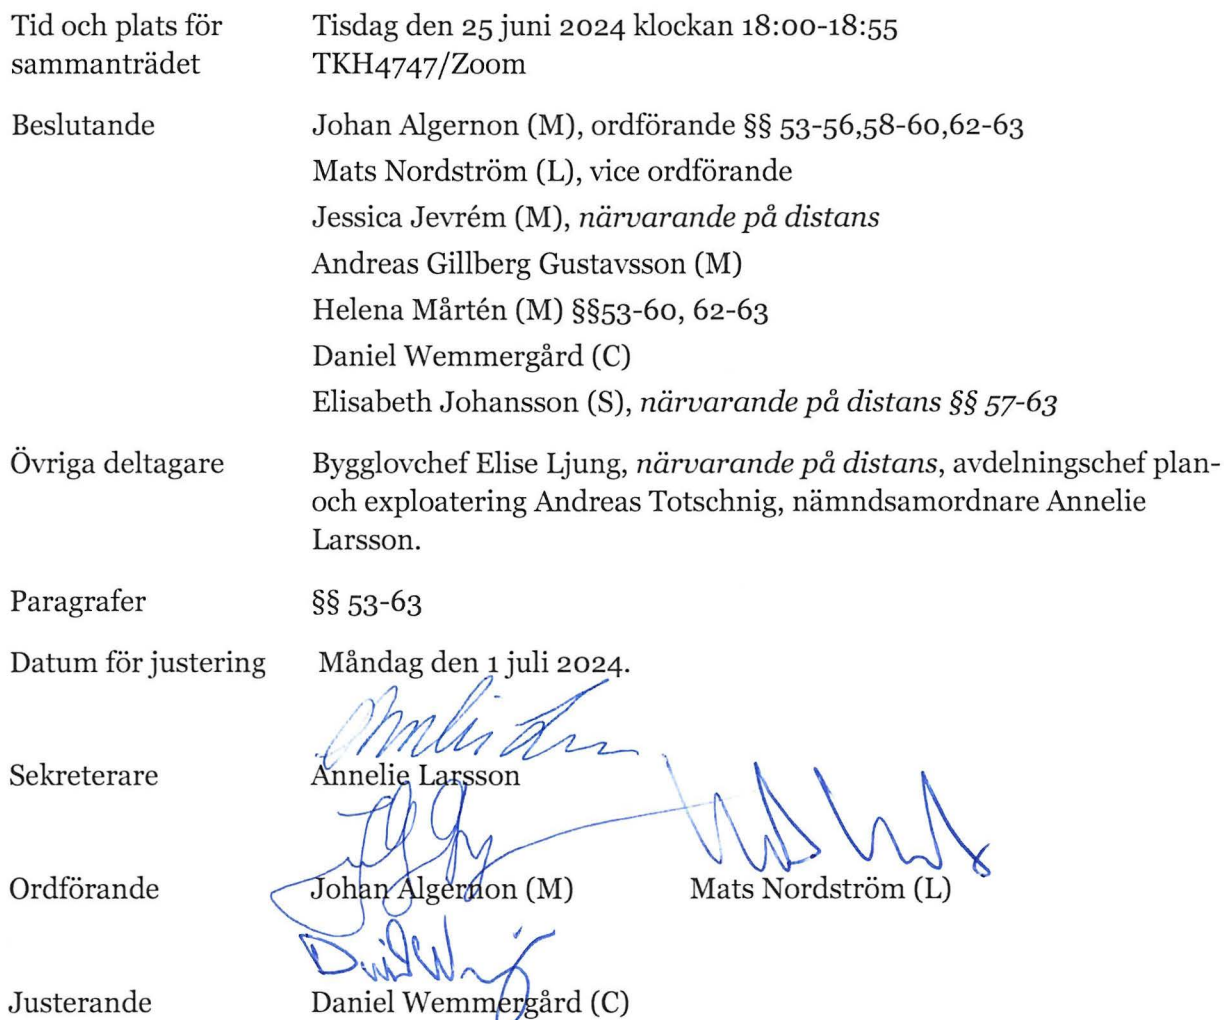 Tid och plats för sammanträdet
Tisdag den 25 juni 2024 klockan 18:00-18:55
TKH4747/Zoom
Beslutande
Johan Algernon (M), ordförande §§ 53-56,58-60,62-63
Mats Nordström (L), vice ordförande
Jessica Jevrém (M), närvarande på distans
Andreas Gillberg Gustavsson (M)
Helena Mårtén (M) §§53-60, 62-63
Daniel Wemmergård (C)
Elisabeth Johansson (S), närvarande på distans §§ 57-63
Övriga deltagare
Bygglovchef Elise Ljung, närvarande på distans, avdelningschef plan-
och exploatering Andreas Totschnig, nämndsamordnare Annelie
Larsson.
Paragrafer
§§ 53-63
Datum för justering
Måndag den 1 juli 2024.
Sekreterare
Annelie Larsson
Ordförande
Johan Algernon (M)
Mats Nordström (L)
Justerande
Daniel Wemmergård (C)